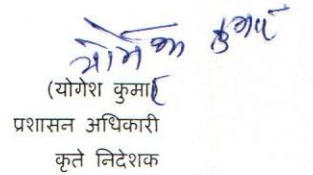 योगेश कुमार
(योगेश कुमार)
प्रशासन अधिकारी
कृते निदेशक